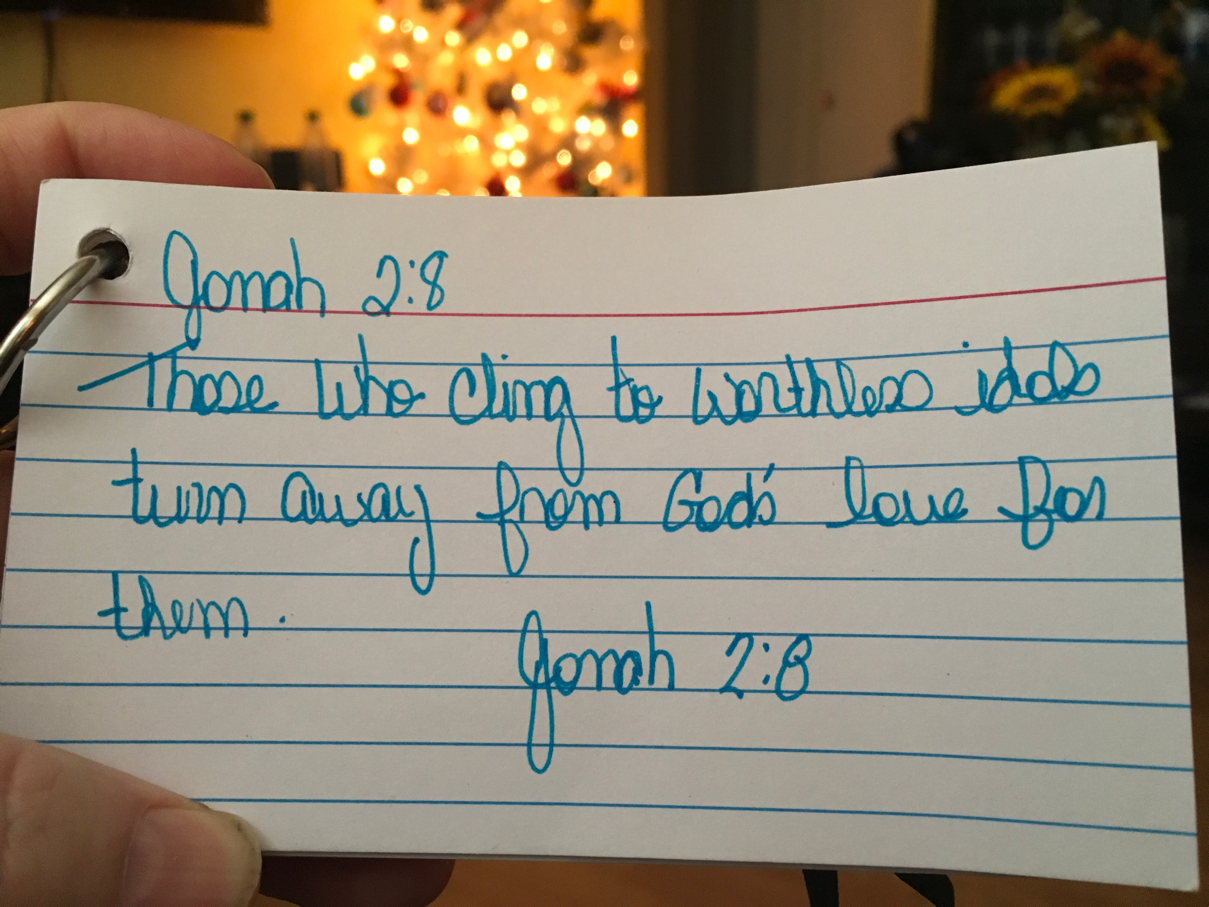 Jonah 2:8
Those who cling to worthless idols
turn away from God's love for
them.
Jonah 2:8